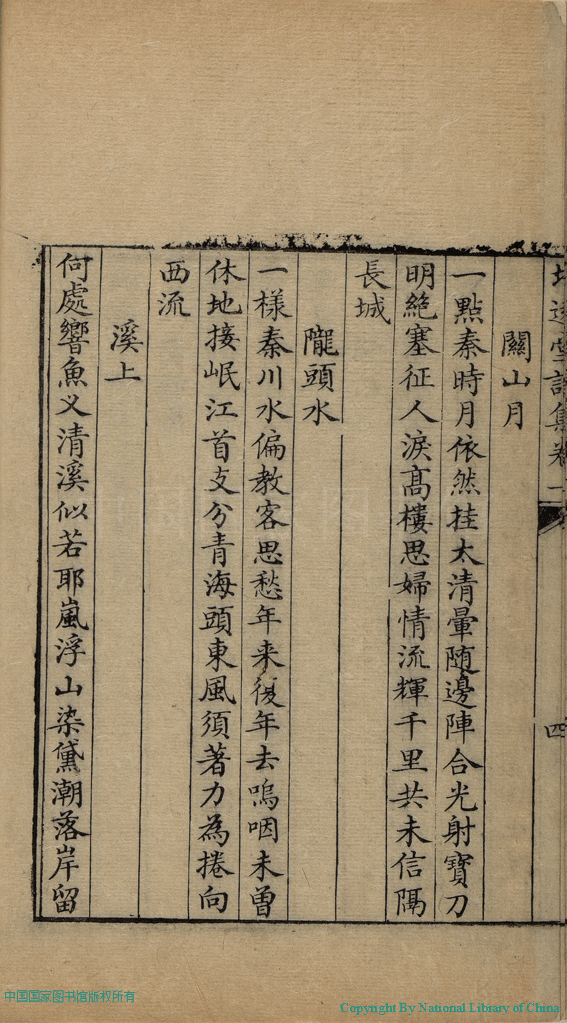 詩集卷一
四
關山月
一點秦時月依然挂太清暈随邊陣合光射寶刀
明絶塞征人淚髙樓思婦情流輝千里共未信隔
長城
隴頭水
一樣秦川水偏教客思愁年来復年去嗚咽未曽
休地接岷江首支分青海頭東風須著力為捲向
西流
溪上
何處響魚义清溪似若耶嵐浮山染黛潮落岸留
中国国家图书馆版权所有
Copyright By National Library of China